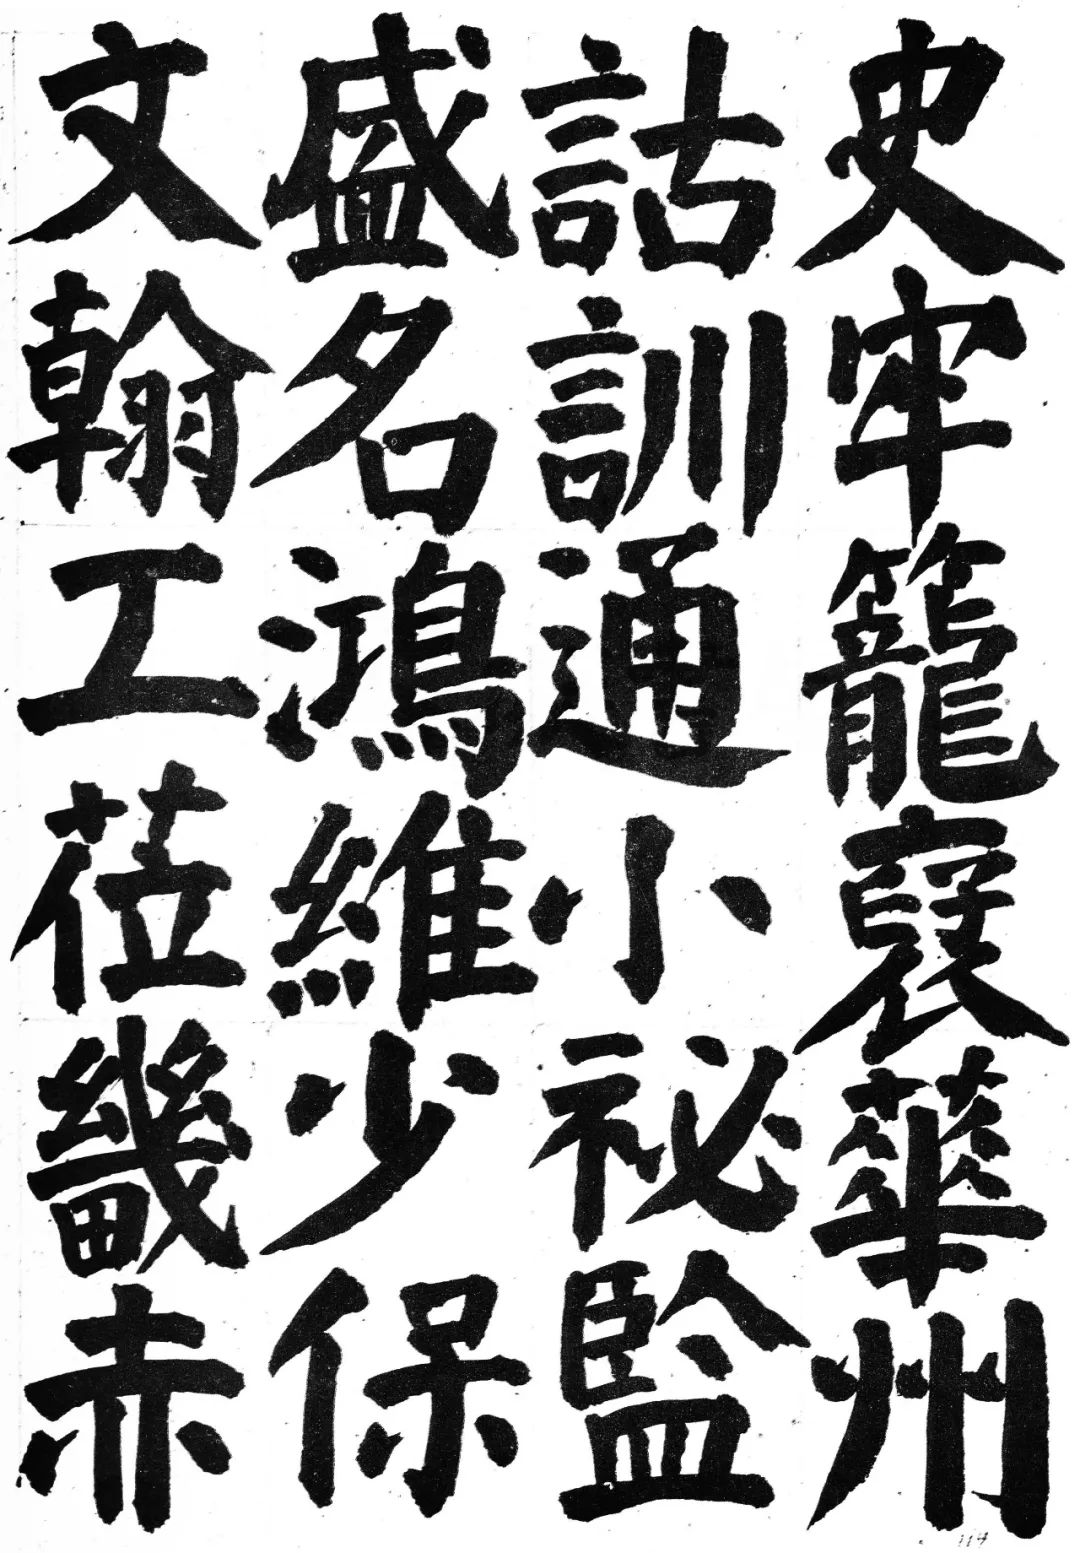 史牢籠裦華州
詁訓通小祕監
盛名鴻維少保
文翰工莅畿赤
114